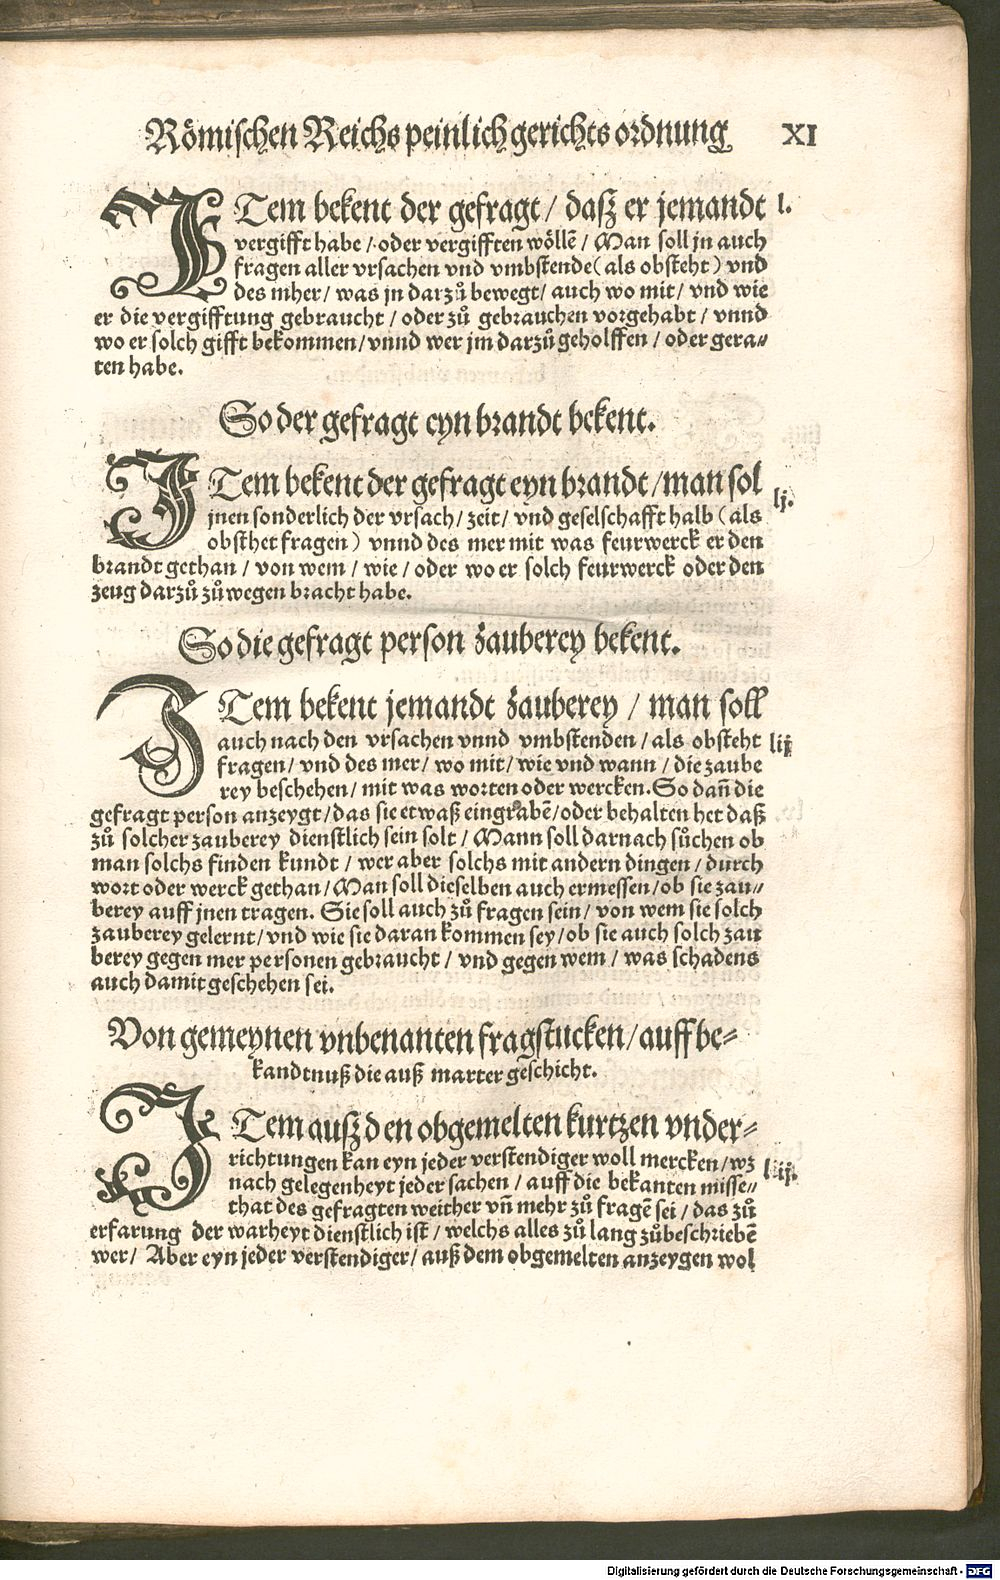 Römischen Reichs peinlich gerichts ordnung XI
ITem bekent der gefragt / dasz er jemandt l.
vergifft habe / oder vergifften wöllẽ / Man soll jn auch
fragen aller vrsachen vnd vmbstende (als obsteht) vnd
des mher / was jn darzů bewegt / auch wo mit / vnd wie
er die vergifftung gebraucht / oder zů gebrauchen vorgehabt / vnnd
wo er solch gifft bekommen / vnnd wer jm darzů geholffen / oder gera⸗
ten habe.
So der gefragt eyn brandt bekent.
ITem bekent der gefragt eyn brandt / man sol
jnen sonderlich der vrsach / zeit / vnd geselschafft halb (als lj.
obsthet fragen) vnnd des mer mit was feurwerck er den
brandt gethan / von wem / wie / oder wo er solch feurwerck oder den
zeug darzů zů wegen bracht habe.
So die gefragt person zauberey bekent.
ITem bekent jemandt zauberey / man soll
auch nach den vrsachen vnnd vmbstenden / als obsteht lij
fragen / vnd des mer / wo mit / wie vnd wann / die zaube
rey beschehen / mit was worten oder wercken. So dañ die
gefragt person anzeygt / das sie etwaß eingrabẽ / oder behalten het daß
zů solcher zauberey dienstlich sein solt / Mann soll darnach sůchen ob
man solchs finden kundt / wer aber solchs mit andern dingen / durch
wort oder werck gethan / Man soll dieselben auch ermessen / ob sie zau⸗
berey auff jnen tragen. Sie soll auch zů fragen sein / von wem sie solch
zauberey gelernt / vnd wie sie daran kommen sey / ob sie auch solch zau
berey gegen mer personen gebraucht / vnd gegen wem / was schadens
auch damit geschehen sei.
Von gemeynen vnbenanten fragstucken / auff be⸗
kandtnuß die auß marter geschicht.
ITem auß den obgemelten kurtzen vnder⸗
richtungen kan eyn jeder verstendiger woll mercken / wz liij.
nach gelegenheyt jeder sachen / auff die bekanten misse⸗
that des gefragten weither vñ mehr zů fragẽ sei / das zů
erfarung der warheyt dienstlich ist / welchs alles zů lang zůbeschriebẽ
wer / Aber eyn jeder verstendiger / auß dem obgemelten anzeygen wol
Digitalisierung gefördert durch die Deutsche Forschungsgemeinschaft - DFG